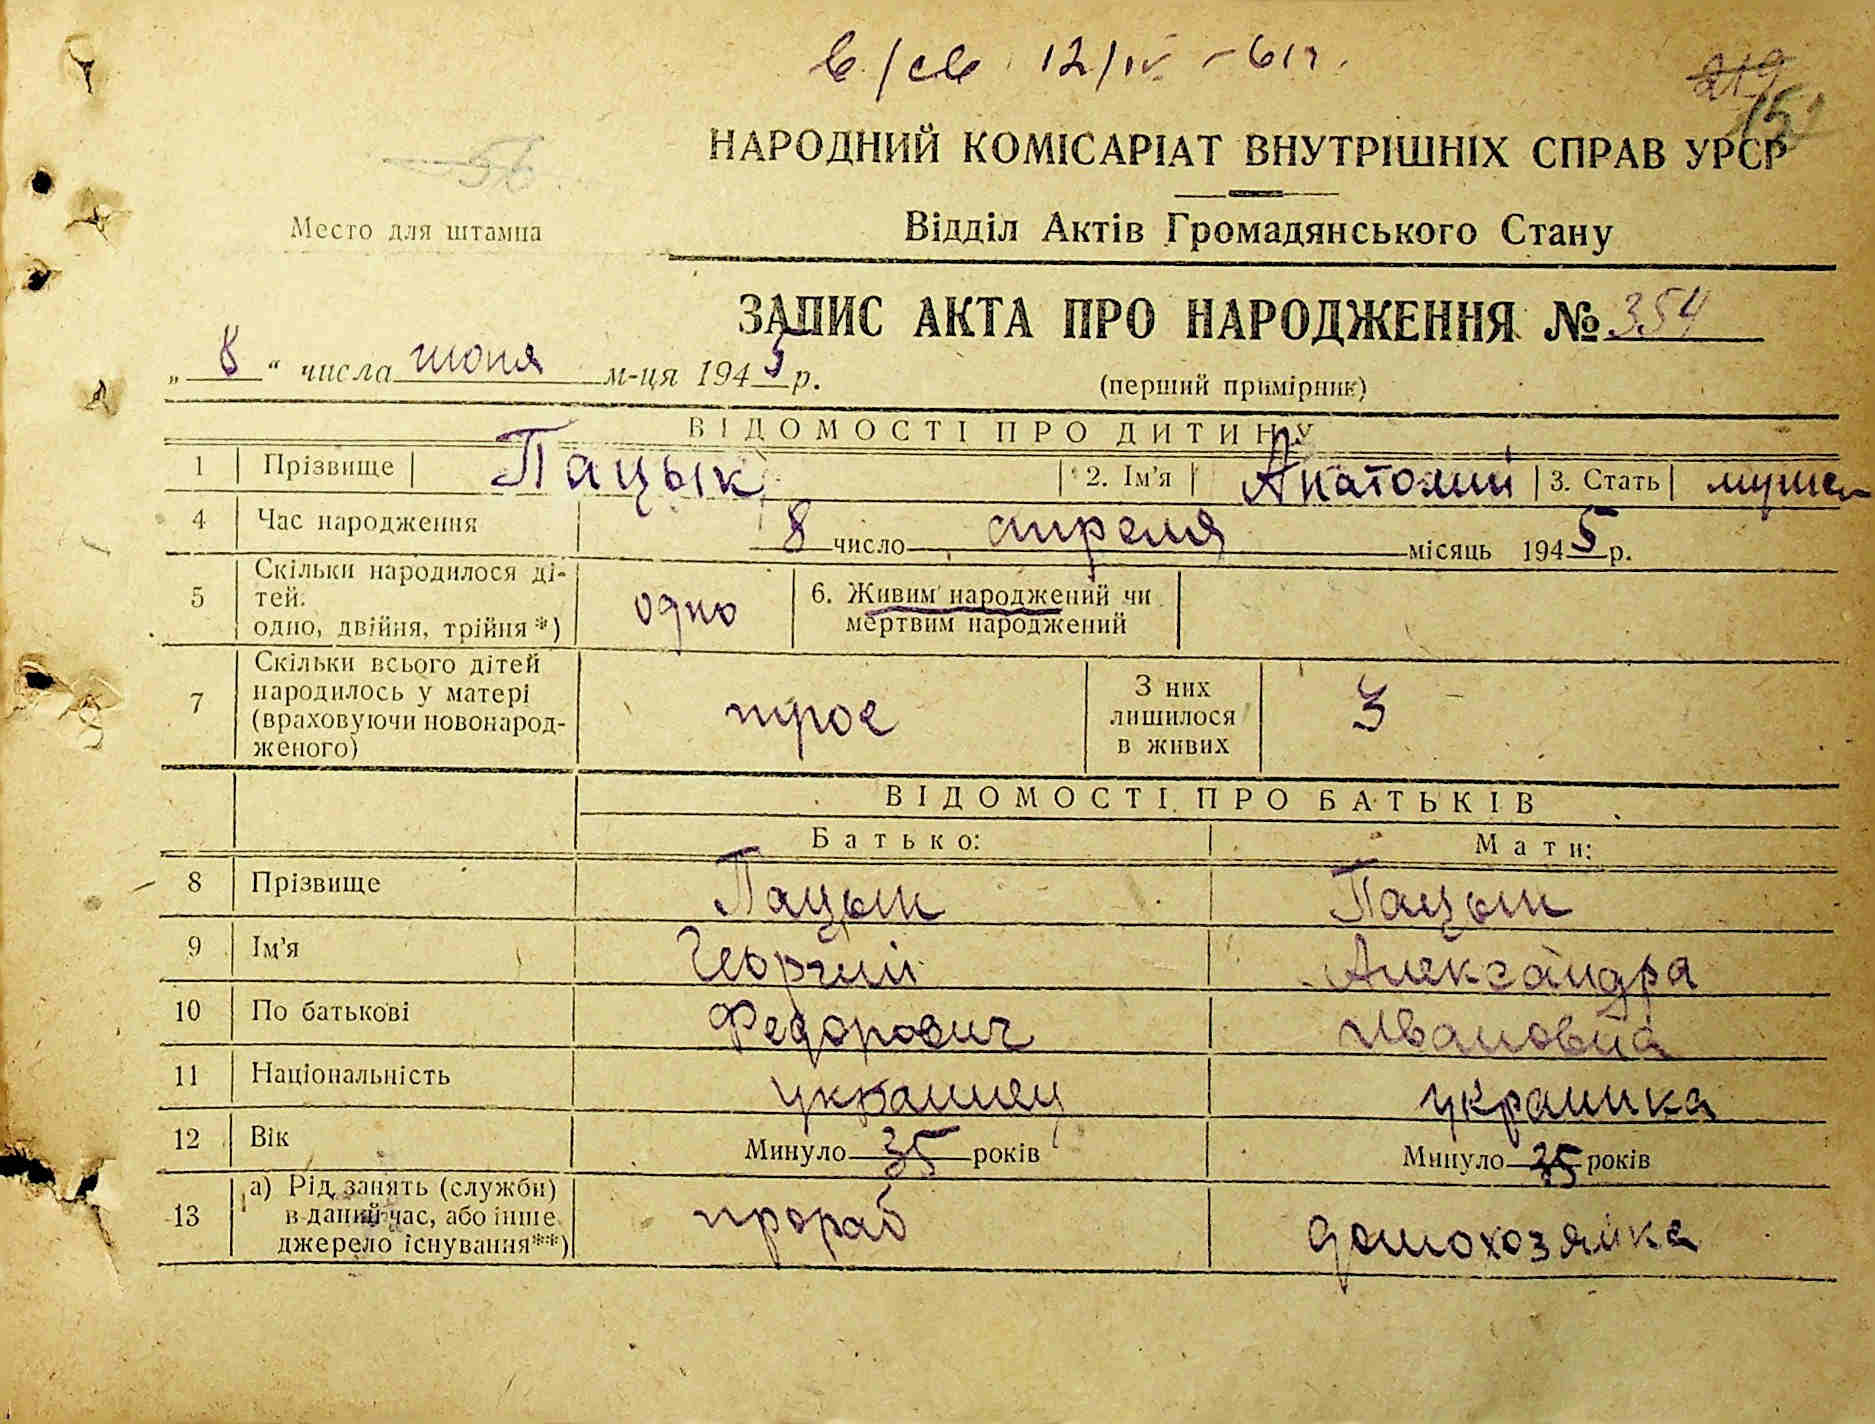 в/св 12/IV - 61г.
219
151
56
НАРОДНИЙ КОМІСАРІАТ ВНУТРІШНІХ СПРАВ УРСР
Место для штампа
Відділ Актів Громадянського Стану
ЗАПИС АКТА ПРО НАРОДЖЕННЯ № 354
„ 8 “ числа июня м-ця 1945 р.
(перший примірник)
ВІДОМОСТІ ПРО ДИТИНУ
1 Прізвище Пацык 2. Ім'я Анатолий 3. Стать
4 Час народження 8 число апреля місяць 1945 р.
5 Скільки народилося ді-
тей.
одно, двійня, трійня*) одно
6. Живим народжений чи
мертвим народжений
7 Скільки всього дітей
народилось у матері
(враховуючи новонарод-
женого) трое
З них
лишилося
в живих 3
ВІДОМОСТІ ПРО БАТЬКІВ
Батько: Мати:
8 Прізвище Пацык Пацык
9 Ім'я Георгий Александра
10 По батькові Федорович Ивановна
11 Національність украинец украинка
12 Вік Минуло 35 років Минуло 35 років
13 а) Рід занять (служби)
в даний час, або інше
джерело існування**) прораб домохозяйка